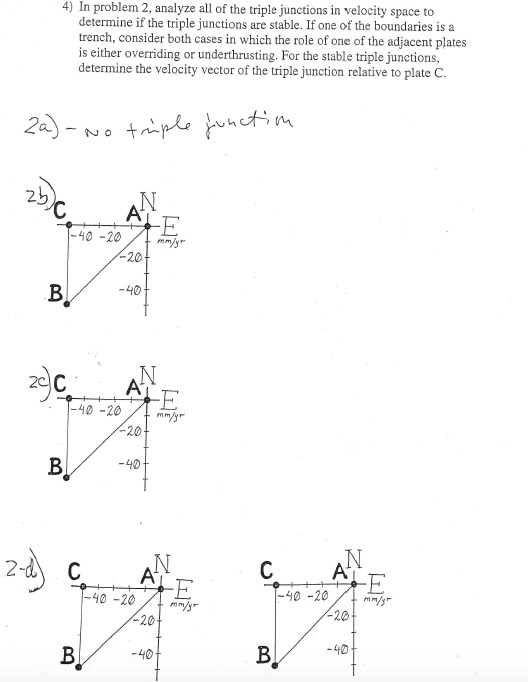 4) In problem 2, analyze all of the triple junctions in velocity space to
determine if the triple junctions are stable. If one of the boundaries is a
trench, consider both cases in which the role of one of the adjacent plates
is either overriding or underthrusting. For the stable triple junctions,
determine the velocity vector of the triple junction relative to plate C.
2a) - No triple junction
2b)
C A N
E
-40 -20 mm/yr
-20
B -40
2c) C A N
E
-40 -20 mm/yr
-20
B -40
2-d) C A N
E
-40 -20 mm/yr
-20
B -40
C A N
E
-40 -20 mm/yr
-20
B -40